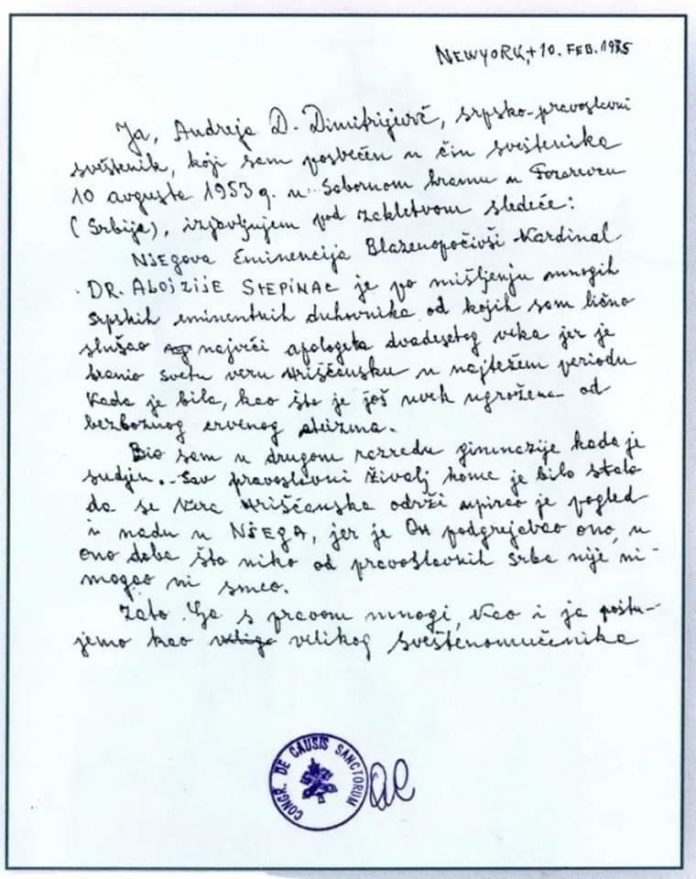 NEWYORK, +10. FEB. 1985
Ja, Andreja D. Dimitrijević, srpsko-pravoslavni
sveštenik, koji sam posvećen u čin sveštenika
10 avgusta 1953 g. u Sabornom hramu u Požarevcu
(Srbija), izjavljujem pod zakletvom sledeće:
NJEGOVA Eminencija Blaženopočivši Kardinal
DR. ALOJZIJE STEPINAC je po mišljenju mnogih
srpskih eminentnih duhovnika od kojih sam lično
slušao najveći apologeta dvadesetog veka jer je
branio svetu veru Hrišćansku u najtežem periodu
kada je bila, kao što je još uvek ugrožena od
bezbožnog crvenog ateizma.
Bio sam u drugom razredu gimnazije kada je
sudjen. Sav pravoslavni živalj kome je bilo stalo
da se vera Hrišćanska održi upirao je pogled
i nadu u NJEGA, jer je On podgrejavao ono, u
ono doba što niko od pravoslavnih srba nije ni-
mogao ni smeo.
Zato Ga s pravom mnogi, kao i ja poštu-
jemo kao velikog sveštenomučenika
CONGR. DE CAUSIS SANCTORUM